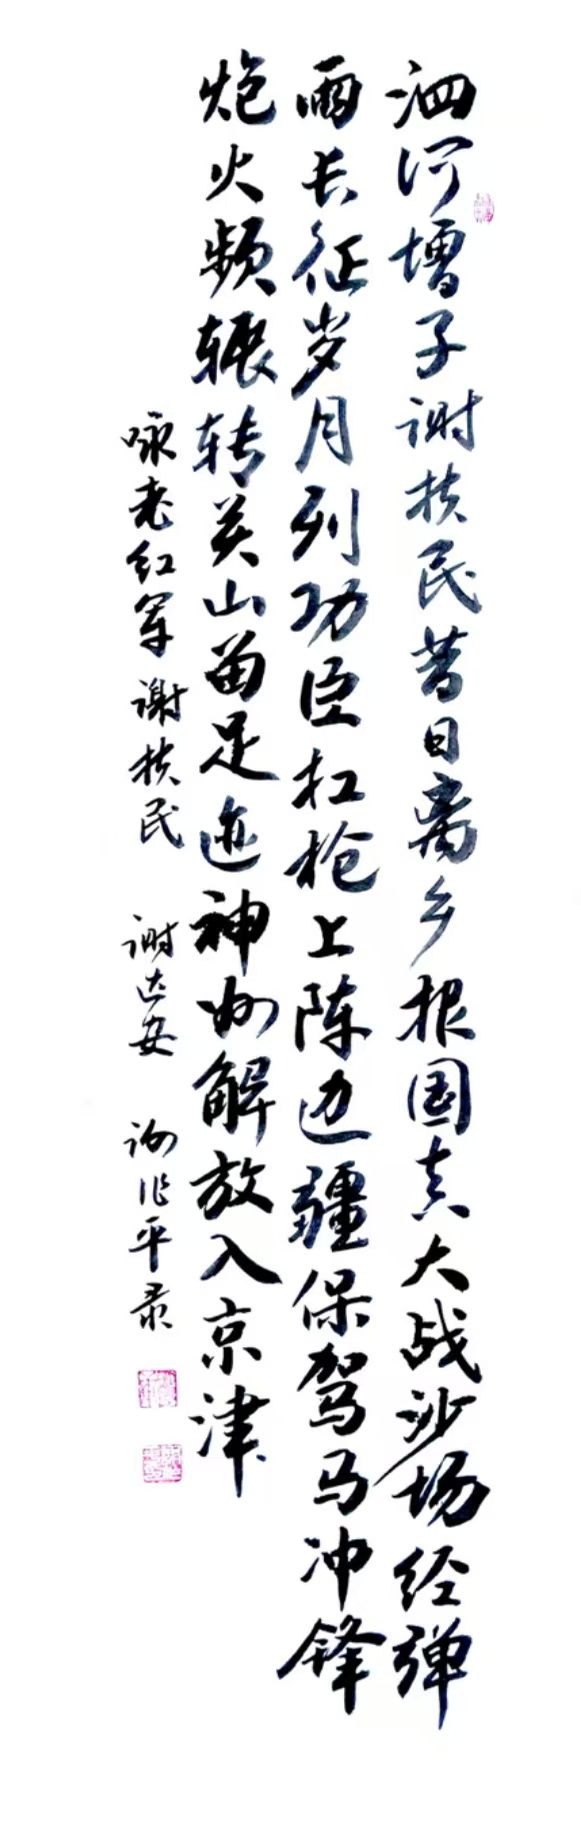 泗河增子谢扶民昔日离乡报国真大战沙场经弹
雨长征岁月列功臣扛枪上阵边疆保驾马冲锋
炮火频辗转关山留足迹神州解放入京津
咏老红军谢扶民 谢达安 作平录